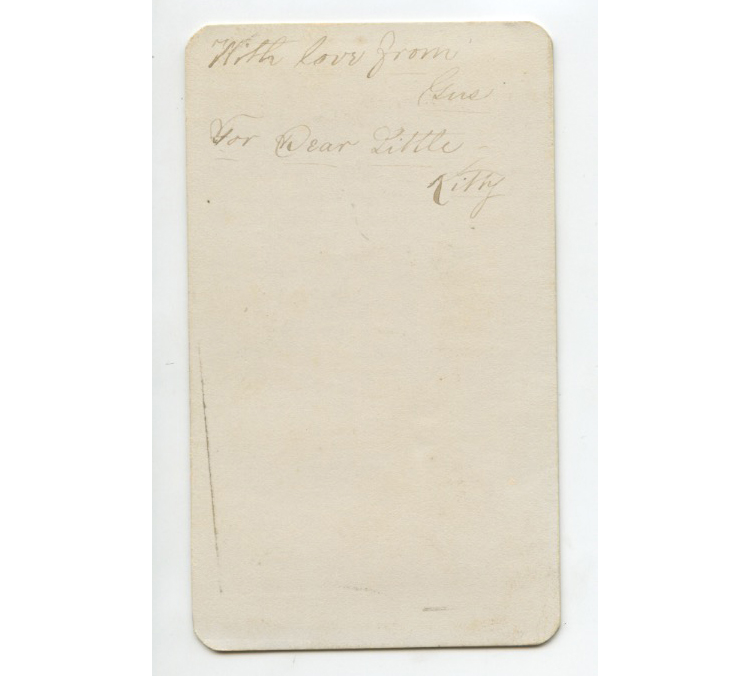 With love from
Gus
For Dear Little
Kitty